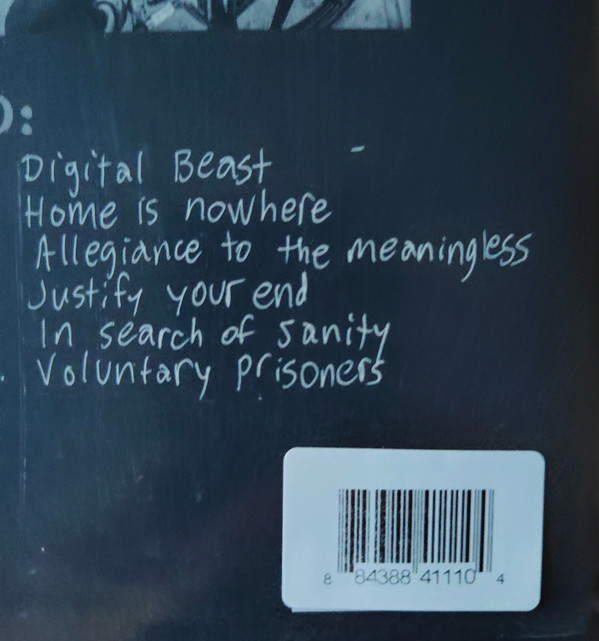 D:
Digital Beast
Home is nowhere
Allegiance to the meaningless
Justify your end
In search of sanity
Voluntary Prisoners
8 84388 41110 4